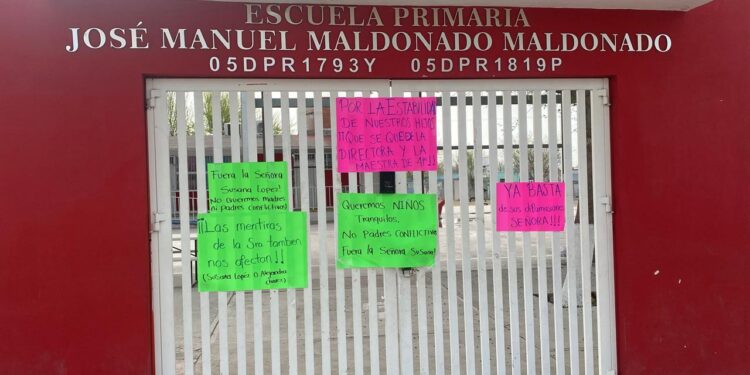 ESCUELA PRIMARIA
JOSÉ MANUEL MALDONADO MALDONADO
05DPR1793Y 05DPR1819P
POR LA EStABILIDAD
DE NUESTROS HIJOS
¡¡QUE SE QUEDE LA
DIRECTORA Y LA
MAESTRA DE 4º!!
Fuera la Señora
Susana Lopez!
No queremos madres
ni Padres CONFLICTIVOS
¡¡Las mentiras
de la Sra tambien
nos afectan!!
(Susana Lopez O Alejandra
Queremos NIÑOS
Tranquilos,
No Padres CONFLICTIVO
Fuera la Señora Susana!
YA BASTA
de sus difamaciones
SEÑORA!!!